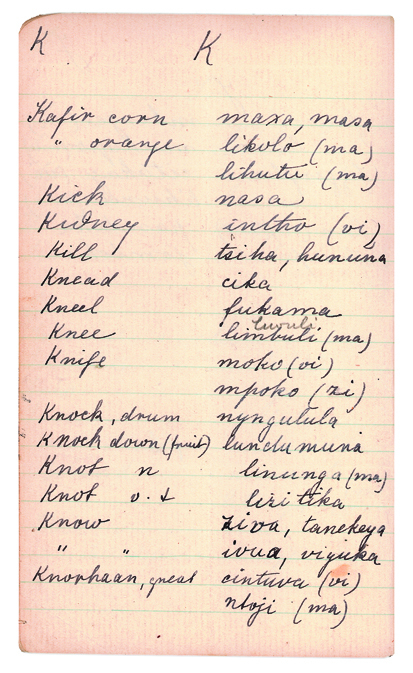 K K
Kafir corn maxa, masa
" orange likolo (ma)
lihutu (ma)
Kick nasa
Kidney intho (vi)
Kill tsiha, hununa
Knead cika
Kneel fukama
luvuli
Knee limbuli (ma)
Knife moko (vi)
mpoko (zi)
Knock, drum nyngulula
Knock down (fruit) lundumuna
Knot n linunga (ma)
Knot v. t liritika
Know ziva, tanekeya
" " ivua, viguka
Knorhaan, great cintuva (vi)
ntoji (ma)